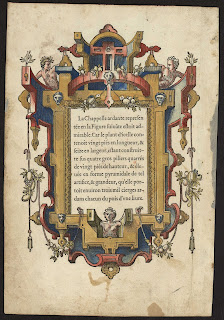 La Chappelle ardante represen-
tée en la Figure suiuāte estoit ad-
mirable. Car le plant d'icelle con-
tenoit vingt piés en longueur, &
seize en largeur, estant construit-
te sus quatre gros piliers quarrés
de vingt piés de hauteur, & esle-
uée en forme pyramidale de tel
artifice, & grandeur, qu'elle por-
toit enuiron trois mil cierges ar-
dans chacun du poix d'vne liure.